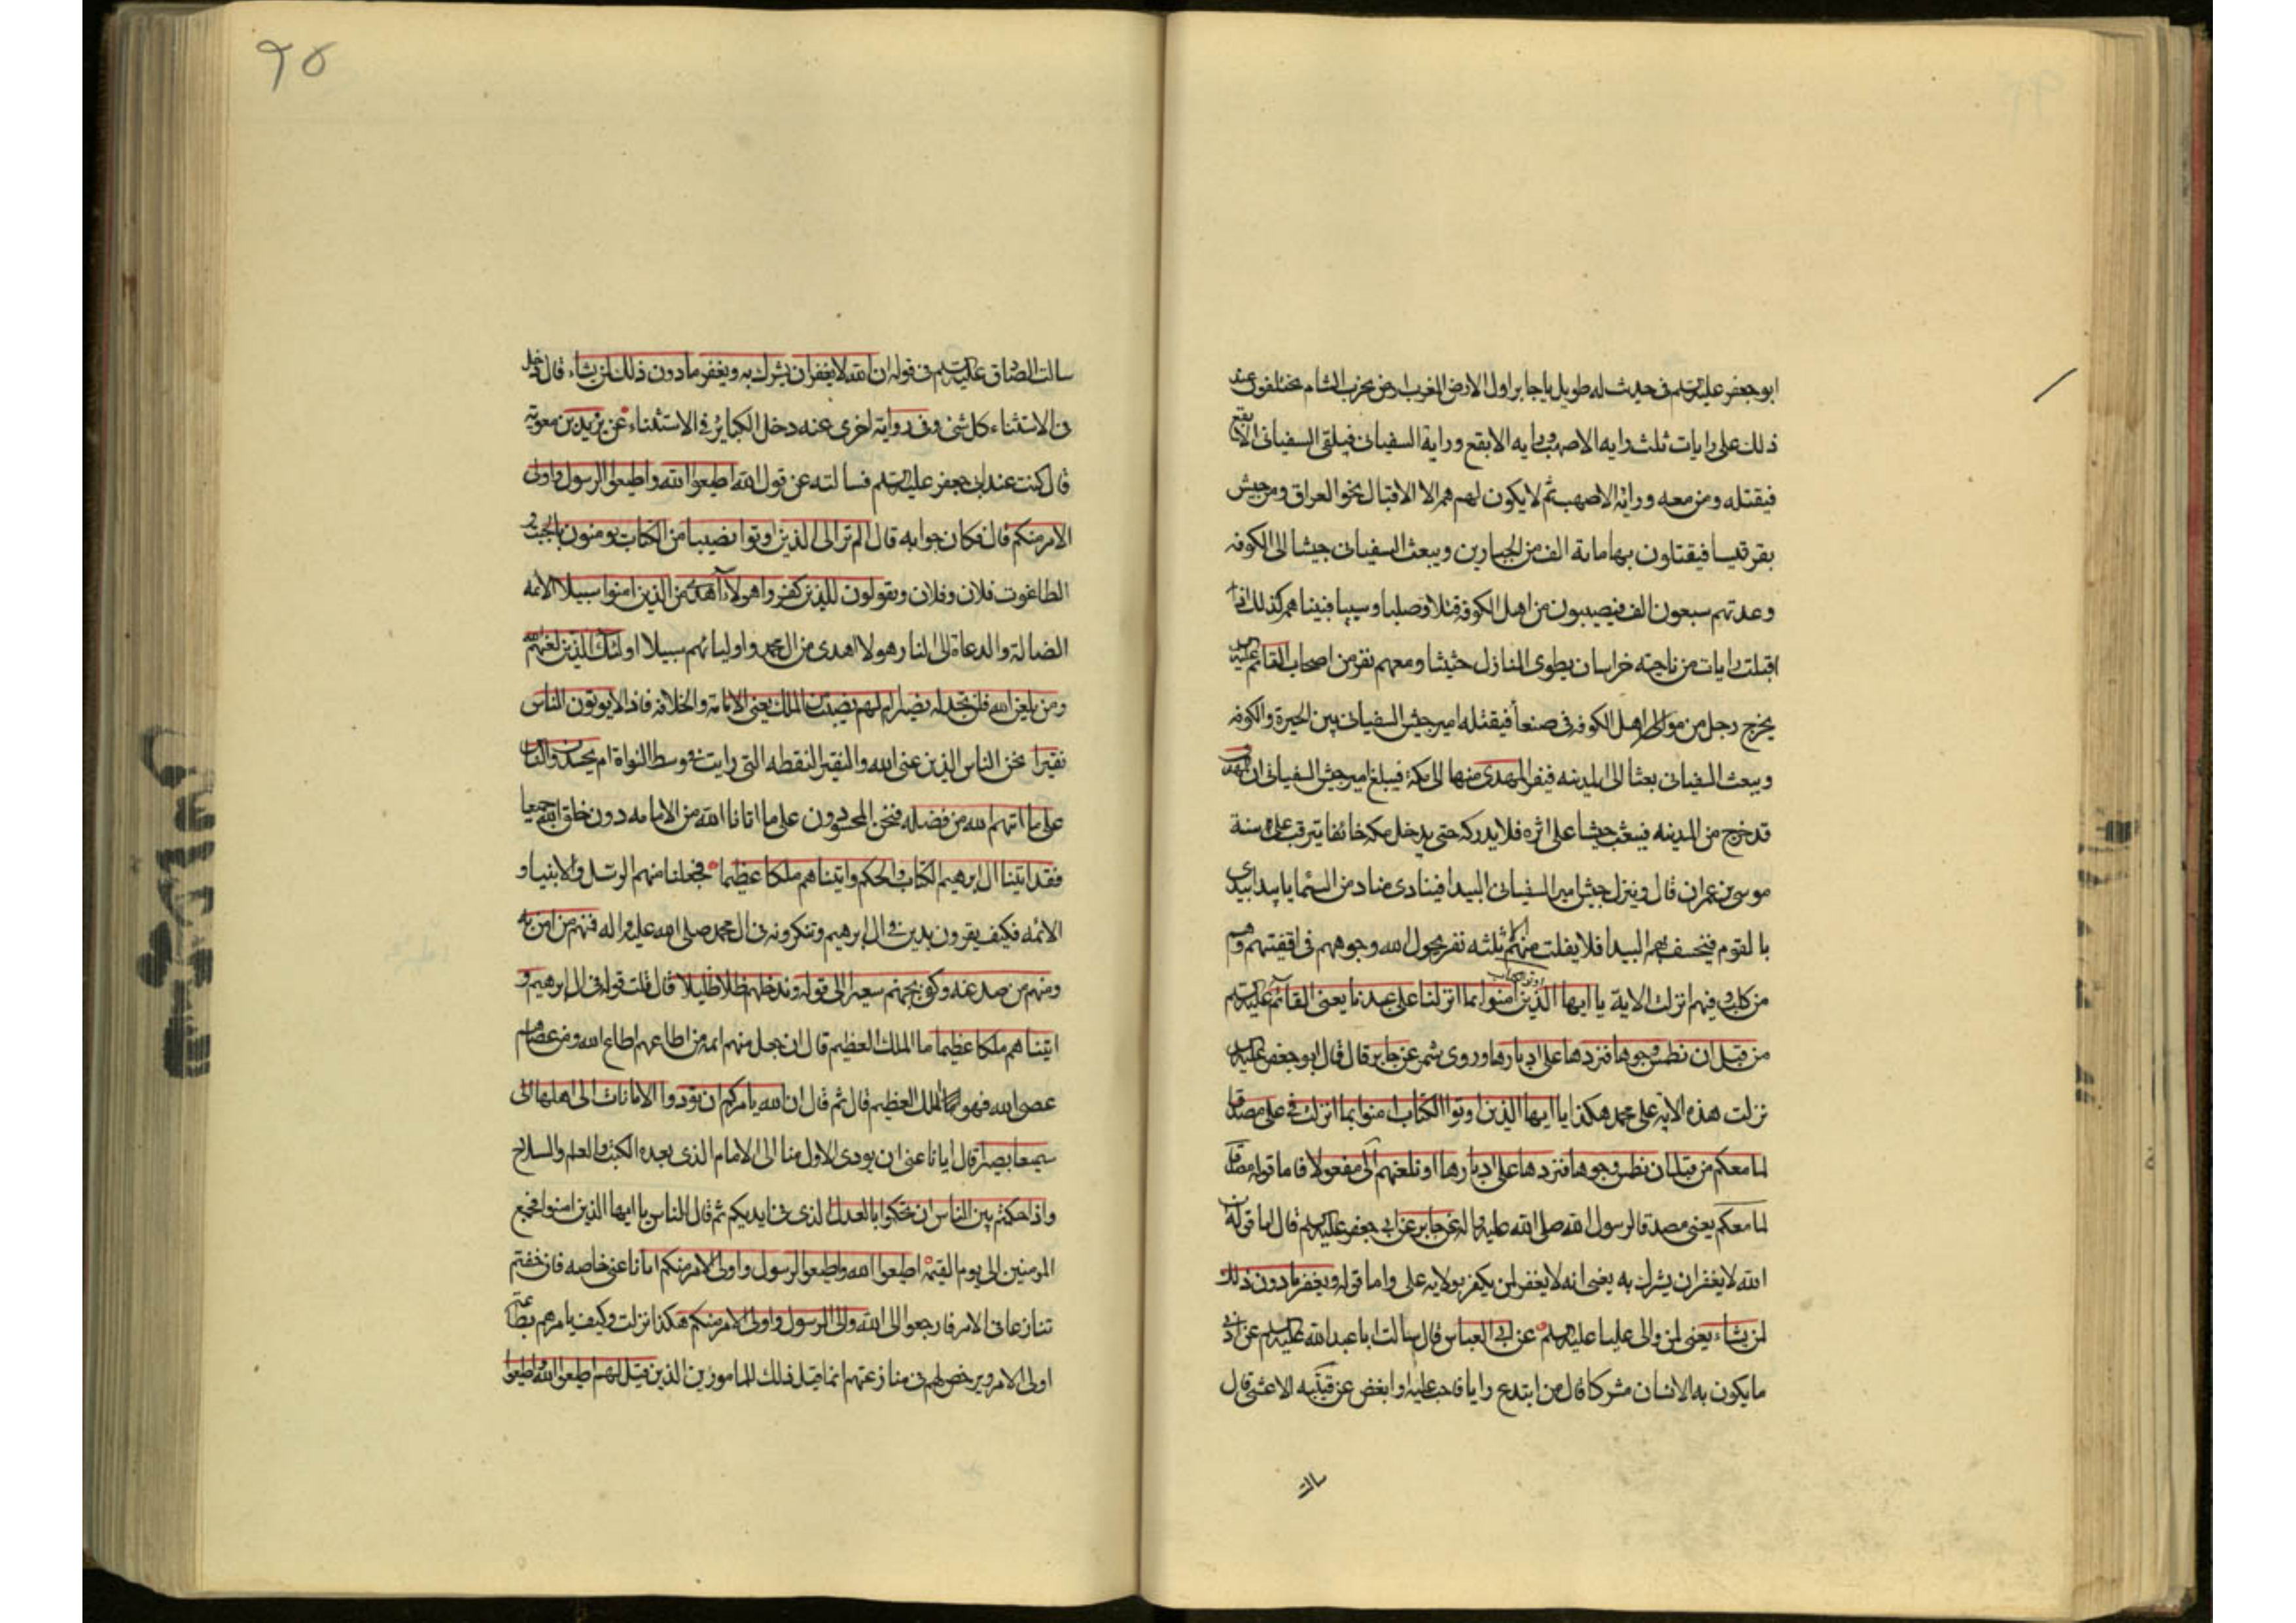 ابو جعفر عليه السلم فى حديث له طويل يا جابر اول الارض المغرب ارض تخرب الشام يختلفون عند
ذلك على رايات ثلث راية الاصهب وراية الابقع وراية السفيانى فيلقى السفيانى الابقع
فيقتله ومن معه وراية الاصهب ثم لا يكون لهم هم الا الاقبال نحو العراق ومر جيش
بقرقيسا فيقتلون بها ماية الف من الجبارين ويبعث السفيانى جيشا الى الكوفه
وعدتهم سبعون الف فيصيبون من اهل الكوفه قتلا وصلبا وسبيا فبينا هم كذلك اذا
اقبلت رايات من ناحيته خراسان يطوى المنازل حثيثا ومعهم نفر من اصحاب القائم عليه السلم
يخرج رجل من موالى اهل الكوفه فى صنعا فيقتله امير جيش السفيانى بين الحيرة والكوفه
ويبعث السفيانى بعثا الى المدينه فينفر المهدى منها الى مكة فيبلغ امير جيش السفيانى ان المهدى
قد خرج من المدينه فيبعث جيشا على اثره فلا يدركه حتى يدخل مكه خائفا يترقب على سنة
موسى بن عمران قال وينزل جيش امير السفيانى البيدا فينادى مناد من السما يا بيدا بيدى
بالقوم فيخسف بهم البيدا فلا يفلت منهم الا ثلثه نفر يحول الله وجوههم فى اقفيتهم وهم
من كلب وفيهم انزلت الاية يا ايها الذين اوتوا الكتاب امنوا بما انزلنا على عبدنا يعنى القائم عليه السلم
من قبل ان نطمس وجوها فنردها على ادبارها وروى شمر عن جابر قال قال ابو جعفر عليه السلم
نزلت هذه الاية على محمد هكذا يا ايها الذين اوتوا الكتاب امنوا بما انزلت فى على مصدقا
لما معكم من قبل ان نطمس وجوها فنردها على ادبارها او نلعنهم الى مفعولا فاما قوله مصدقا
لما معكم يعنى مصدقا لرسول الله صلى الله عليه واله عن جابر عن ابى جعفر عليه السلم قال اما قوله ان
الله لا يغفر ان يشرك به يعنى انه لا يغفر لمن يكفر بولاية على واما قوله ويغفر ما دون ذلك
لمن يشاء يعنى لمن والى عليا عليه السلم عن ابى العباس قال سالت ابا عبد الله عليه السلم عن ادنى
ما يكون به الانسان مشركا قال من ابتدع رايا فاحب عليه او ابغض عن قتيبه الاعشى قال
سالت
٩٥
سالت الصادق عليه السلم فى قوله ان الله لا يغفر ان يشرك به ويغفر ما دون ذلك لمن يشاء قال دخل
فى الاستثناء كل شئ وفى رواية اخرى عنه دخل الكباير فى الاستثناء عن بريد بن معوية
قال كنت عند ابى جعفر عليه السلم فسالته عن قول الله اطيعوا الله واطيعوا الرسول واولى
الامر منكم قال فكان جوابه قال الم تر الى الذين اوتوا نصيبا من الكتاب يومنون بالجبت و
الطاغوت فلان وفلان ويقولون للذين كفروا هولاء اهدى من الذين امنوا سبيلا الائمه
الضالة والدعاة الى النار هولا اهدى من ال محمد واوليائهم سبيلا اولئك الذين لعنهم الله
ومن يلعن الله فلن تجد له نصيرا ام لهم نصيب من الملك يعنى الامامة والخلافه فاذا لا يوتون الناس
نقيرا نحن الناس الذين عنى الله والنقير النقطه التى رايت فى وسط النواة ام يحسدون الناس
على ما اتيهم الله من فضله فنحن المحسودون على ما اتانا الله من الامامه دون خلق الله جميعا
فقد اتينا ال ابرهيم الكتاب والحكم واتيناهم ملكا عظيما فجعلنا منهم الرسل والانبيا و
الائمه فكيف يقرون بدين فى ال ابرهيم وتنكرونه فى ال محمد صلى الله عليه واله فمنهم من امن به
ومنهم من صد عنه وكفى بجهنم سعيرا الى قوله وندخلهم ظلا ظليلا قال قلت قوله فى ال ابرهيم و
اتيناهم ملكا عظيما ما الملك العظيم قال ان جعل منهم ائمة من اطاعهم اطاع الله ومن عصاهم
عصى الله فهو الملك العظيم قال ثم قال ان الله يامركم ان تؤدوا الامانات الى اهلها الى
سميعا بصيرا قال ايانا عنى ان يودى الاول منا الى الامام الذى بعده الكتب والعلم والسلاح
واذا حكمتم بين الناس ان تحكموا بالعدل الذى فى ايديكم ثم قال للناس يا ايها الذين امنوا فجمع
المومنين الى يوم القيمة اطيعوا الله واطيعوا الرسول واولى الامر منكم ايانا عنى خاصه فان خفتم
تنازعا فى الامر فارجعوا الى الله والى الرسول واولى الامر منكم هكذا نزلت وكيف يامرهم بطاعة
اولى الامر ويرخص لهم فى منازعتهم انما قيل ذلك للمامورين الذين قيل لهم اطيعوا الله واطيعوا